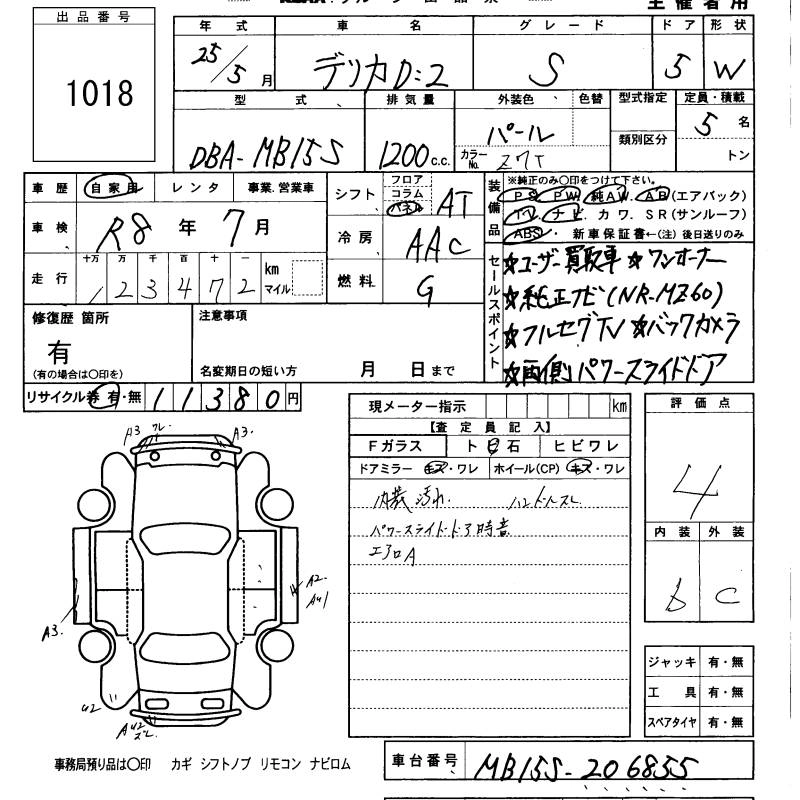 出品番号
1018
主催者用
年式 車名 グレード ドア 形状
25/5月 デリカD:2 S 5 W
型式 排気量 外装色 色替 型式指定 定員・積載
DBA-MB15S 1200c.c. パール 5名
カラーNo. Z7T 類別区分 トン
車歴 自家用 レンタ 事業.営業車
車検 R8年 7月
走行 十万 万 千 百 十 一
1 2 3 4 7 2 km マイル
シフト フロア コラム パネル AT
冷房 AAC
燃料 G
装備品
※純正のみ○印をつけて下さい。
PS. PW. 純AW. AB(エアバック)
TV. ナビ. カワ. SR(サンルーフ)
ABS. 新車保証書←(注)後日送りのみ
セールスポイント
☆ユーザー買取車 ☆ワンオーナー
☆純正ナビ(NR-MZ60)
☆フルセグTV ☆バックカメラ
☆両側パワースライドドア
修復歴 箇所
有
(有の場合は○印を)
注意事項
名変期日の短い方 月 日まで
リサイクル券 有・無 11380円
現メーター指示 km
【査定員記入】
Fガラス ト石 ヒビワレ
ドアミラー キズ・ワレ ホイール(CP) キズ・ワレ
内装汚れ. ハンドルスレ
パワースライドドア時音
エアロA
評価点
4
内装 外装
b C
A3 ワレ A3.
A2
AU1
A3.
U2
AU2
ズレ
ジャッキ 有・無
工具 有・無
スペアタイヤ 有・無
事務局預り品は○印 カギ シフトノブ リモコン ナビロム
車台番号 MB15S-206855